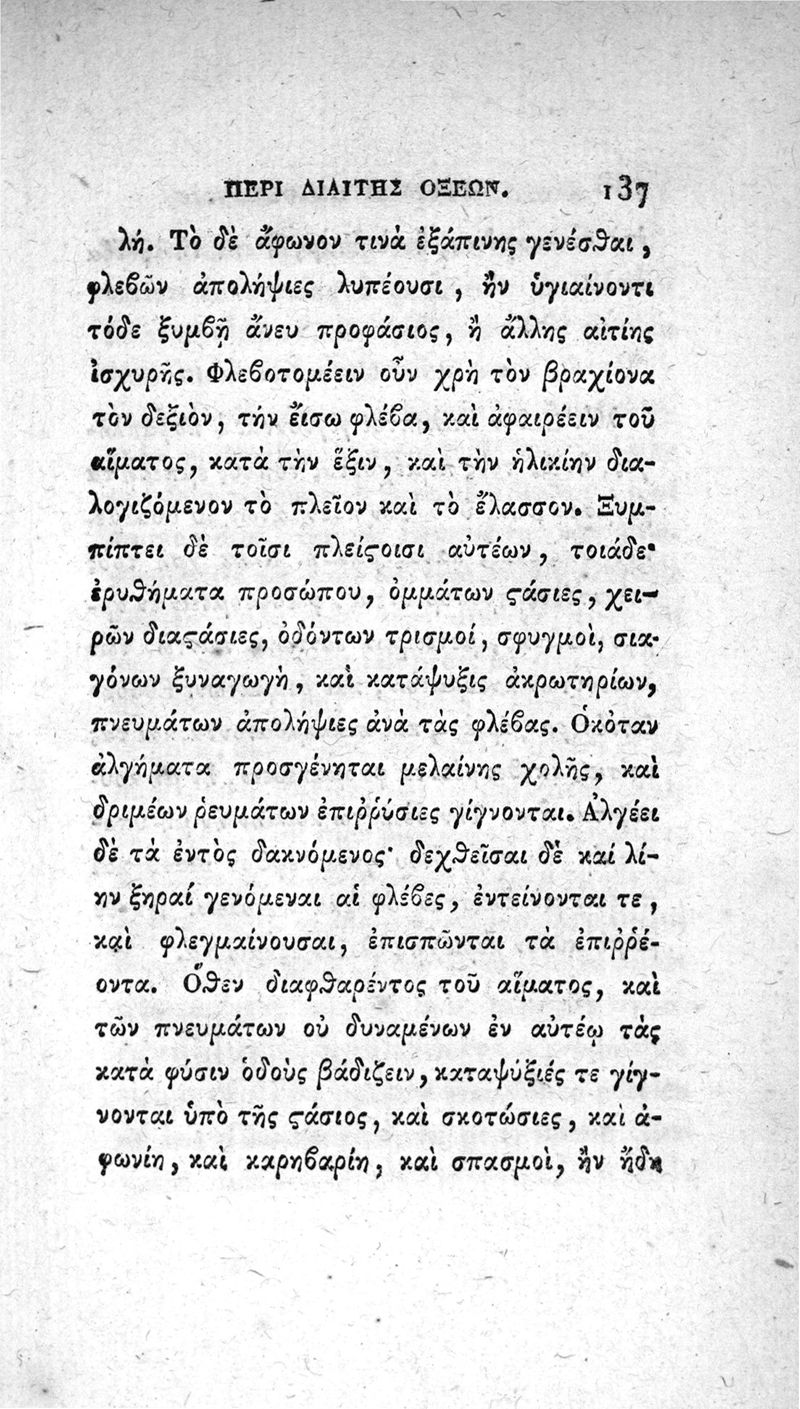 ΠΕΡΙ ΔΙΑΙΤΗΣ ΟΞΕΩΝ. 137
λή. Τὸ δὲ ἄφωνον τινὰ ἐξάπινης γενέσθαι,
φλεβῶν ἀπολήψιες λυπέουσι, ἢν ὑγιαίνοντι
τόδε ξυμβῇ ἄνευ προφάσιος, ἢ ἄλλης αἰτίης
ἰσχυρῆς. Φλεβοτομέειν οὖν χρὴ τὸν βραχίονα
τὸν δεξιὸν, τήν εἴσω φλέβα, καὶ ἀφαιρέειν τοῦ
αἵματος, κατὰ τὴν ἕξιν, καὶ τὴν ἡλικίην δια-
λογιζόμενον τὸ πλεῖον καὶ τὸ ἔλασσον. Ξυμ-
πίπτει δὲ τοῖσι πλείϛοισι αὐτέων, τοιάδε·
ἐρυθήματα προσώπου, ὀμμάτων ϛάσιες, χει-
ρῶν διαϛάσιες, ὀδόντων τρισμοί, σφυγμοὶ, σια-
γόνων ξυναγωγὴ, καὶ κατάψυξις ἀκρωτηρίων,
πνευμάτων ἀπολήψιες ἀνὰ τὰς φλέβας. Ὁκόταν
ἀλγήματα προσγένηται μελαίνης χολῆς, καὶ
δριμέων ῥευμάτων ἐπιῤῥύσιες γίγνονται. Ἀλγέει
δὲ τὰ ἐντὸς δακνόμενος· δεχθεῖσαι δὲ καί λί-
ην ξηραί γενόμεναι αἱ φλέβες, ἐντείνονται τε,
καὶ φλεγμαίνουσαι, ἐπισπῶνται τὰ ἐπιῤῥέ-
οντα. Ὅθεν διαφθαρέντος τοῦ αἵματος, καὶ
τῶν πνευμάτων οὐ δυναμένων ἐν αὐτέῳ τὰς
κατὰ φύσιν ὁδοὺς βάδιζειν, καταψύξιές τε γίγ-
νονται ὑπὸ τῆς ϛάσιος, καὶ σκοτώσιες, καὶ ἀ-
φωνίη, καὶ καρηβαρίη, καὶ σπασμοὶ, ἢν ἤδη